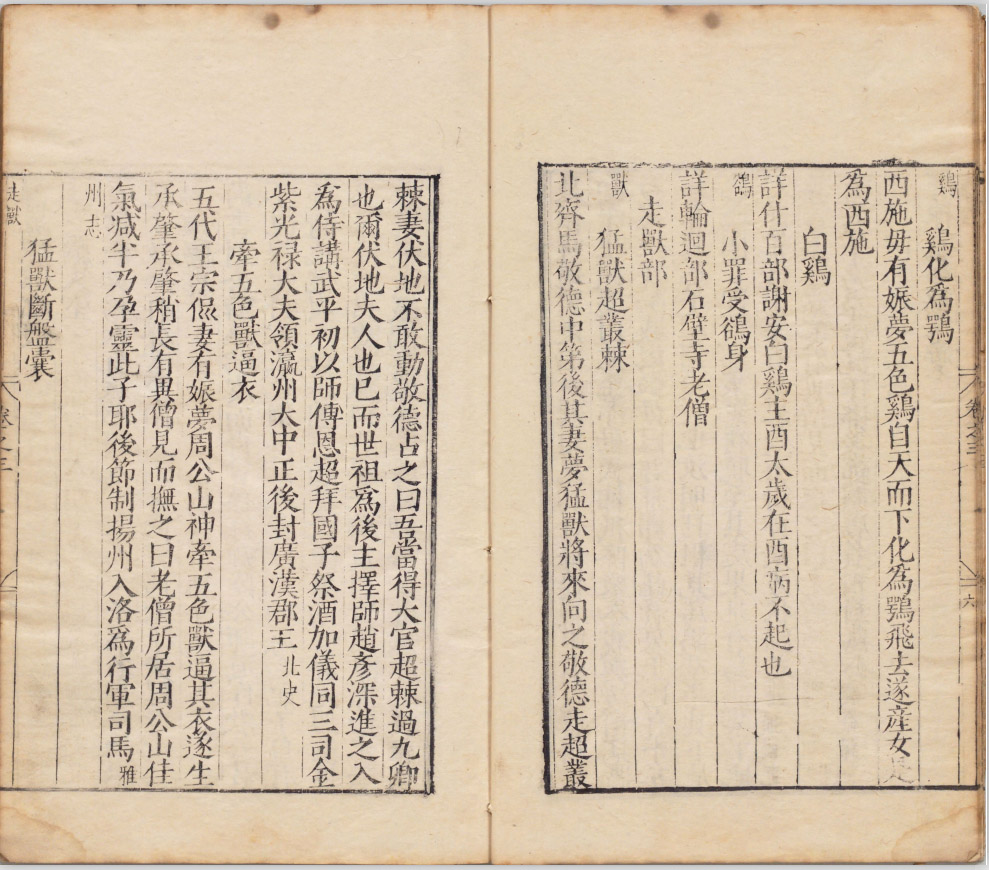 卷之三
六
鷄
鷄化爲鶚
西施毋有娠夢五色鷄自天而下化爲鶚飛去遂産女是
爲西施
白鷄
詳什百部謝安白鷄主酉太歲在酉病不起也
鵒
小罪受鵒身
詳輪迴部石壁寺老僧
走獸部
獸
猛獸超叢棘
北齊馬敬德中第後其妻夢猛獸將來向之敬德走超叢
棘妻伏地不敢動敬德占之曰吾當得大官超棘過九卿
也爾伏地夫人也已而世祖爲後主擇師趙彥深進之入
爲侍講武平初以師傅恩超拜國子祭酒加儀同三司金
紫光禄大夫領瀛州大中正後封廣漢郡王 北史
牽五色獸逼衣
五代王宗侃妻有娠夢周公山神牽五色獸逼其衣遂生
承肇承肇稍長有異僧見而撫之曰老僧所居周公山佳
氣减半乃孕靈此子耶後節制揚州入洛爲行軍司馬 雅
州志
猛獸斷盤囊
走獸
卷之三